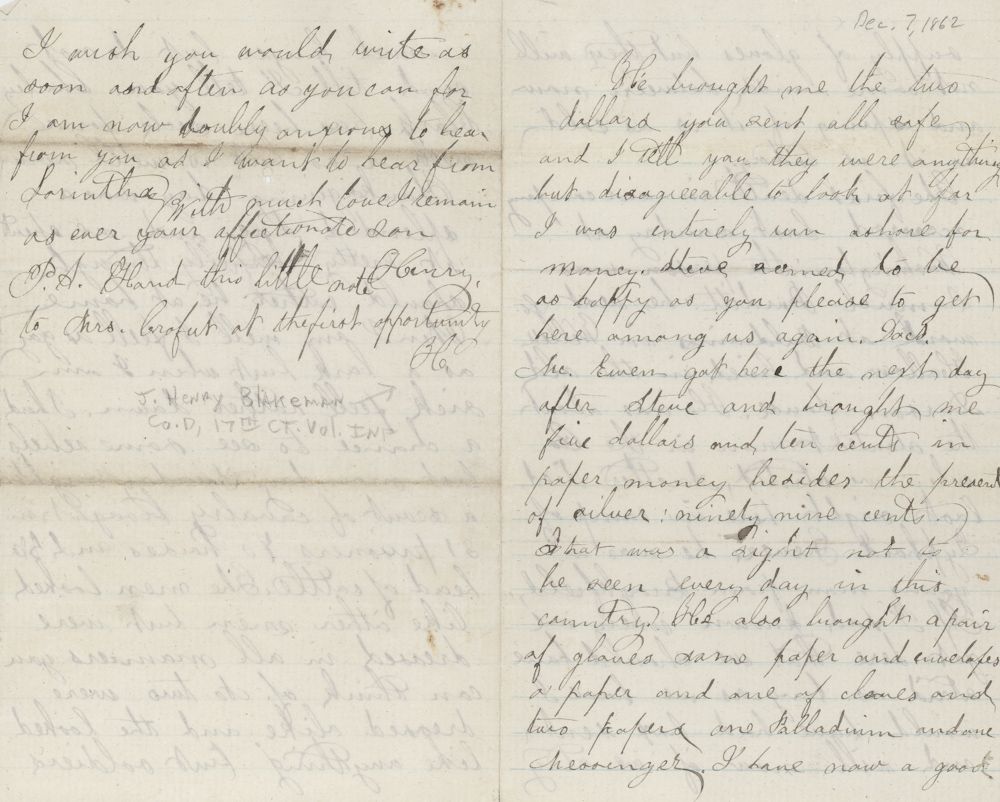 I wish you would write as
soon and often as you can for
I am now doubly anxious to hear
from you as I want to hear from
Lorintha With much love I remain
as ever your affectionate son
Henry.
P.S. Hand this little note
to Mrs. Crofut at the first opportunity
H
J. HENRY BLAKEMAN
CO. D, 17TH CT. VOL. INF
Dec. 7, 1862
He brought me the two
dollars you sent all safe
and I tell you they were anything
but disagreeable to look at for
I was entirely run ashore for
money. Steve seemed to be
as happy as you please to get
here among us again. Doct.
Mc. Ewen got here the next day
after Steve and brought me
five dollars and ten cents in
paper money besides the present
of silver: ninety nine cents.
That was a sight not to
be seen every day in this
country. He also brought a pair
of gloves some paper and envelopes
a paper and one of cloves and
two papers one Palladium and one
Messinger. I have now a good